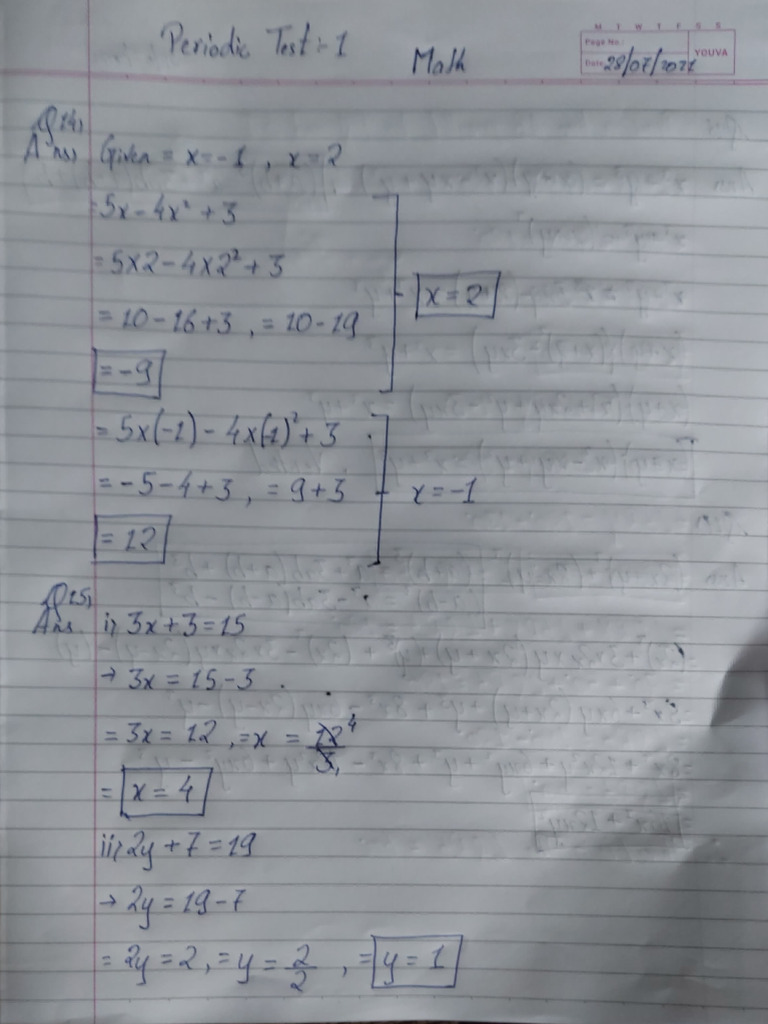 Periodic Test:-1
Math
M T W T F S S
Page No.:
YOUVA
Date: 28/07/2021
Q14)
Ans) Given = x=-1, x=2
=5x-4x²+3
=5x2-4x2²+3
x=2
=10-16+3, =10-19
=-9
=5x(-1)-4x(-1)²+3
=-5-4+3, =9+3
x=-1
=12
Q15)
Ans. i) 3x+3=15
→ 3x=15-3
=3x=12, =x = 12/3 4
= x=4
ii) 2y+7=19
→ 2y=19-7
=2y=2, =y=2/2, = y=1